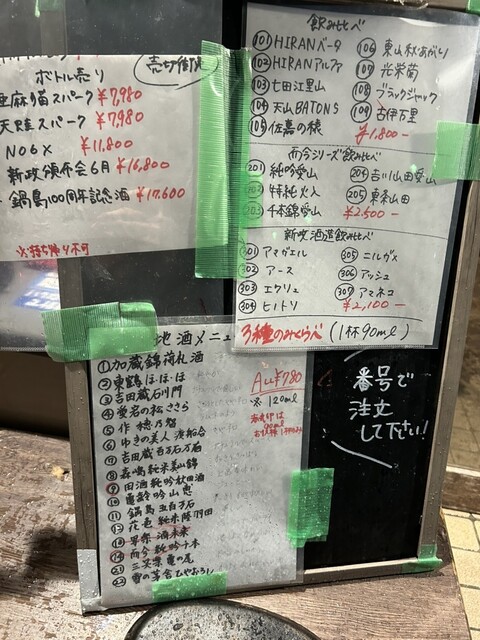 ボトル売り
売切御免
亜麻猫スパーク ¥7,980
天蛙スパーク ¥7,980
NO6X ¥11,800
新政頒布会6月 ¥16,800
鍋島100周年記念酒 ¥17,600
※持ち帰り不可
飲み比べ
101 HIRANベータ
102 HIRANアルファ
103 七田江里山
104 天山BATONS
105 佐嘉の穂
106 東山秋あがり
107 光栄菊
108 ブラックジャック
109 古伊万里
¥1,800-
而今シリーズ飲み比べ
201 純吟愛山
202 特純火入
203 千本錦愛山
204 吉川山田愛山
205 東条山田
¥2,500-
新政酒造飲み比べ
301 アマガエル
302 アース
303 エクリュ
304 ヒノトリ
305 ニルガメ
306 アッシュ
307 アマネコ
¥2,100-
3種のみくらべ (1杯90ml)
地酒メニュ
ALL ¥780
※120ml
① 加蔵錦 荷札酒
② 東鶴 ほ・ほ・ほ
③ 吉田蔵 石川門
④ 愛宕の松 ささら
⑤ 作 穂乃智
⑥ ゆきの美人
⑦ 吉田蔵 百万石乃
⑧ 森嶋 純米 美山錦
⑨ 田酒 純吟 秋田酒
⑩ 亀齢 吟山恵
⑪ 鍋島 五百万石
⑫ 花邑 純米 陸羽田
⑬ 酒未来
⑭ 而今 純吟 千本
㉑ 三笑楽
㉒ 雪の茅舎 ひやおろし
番号で
注文
して下さい!